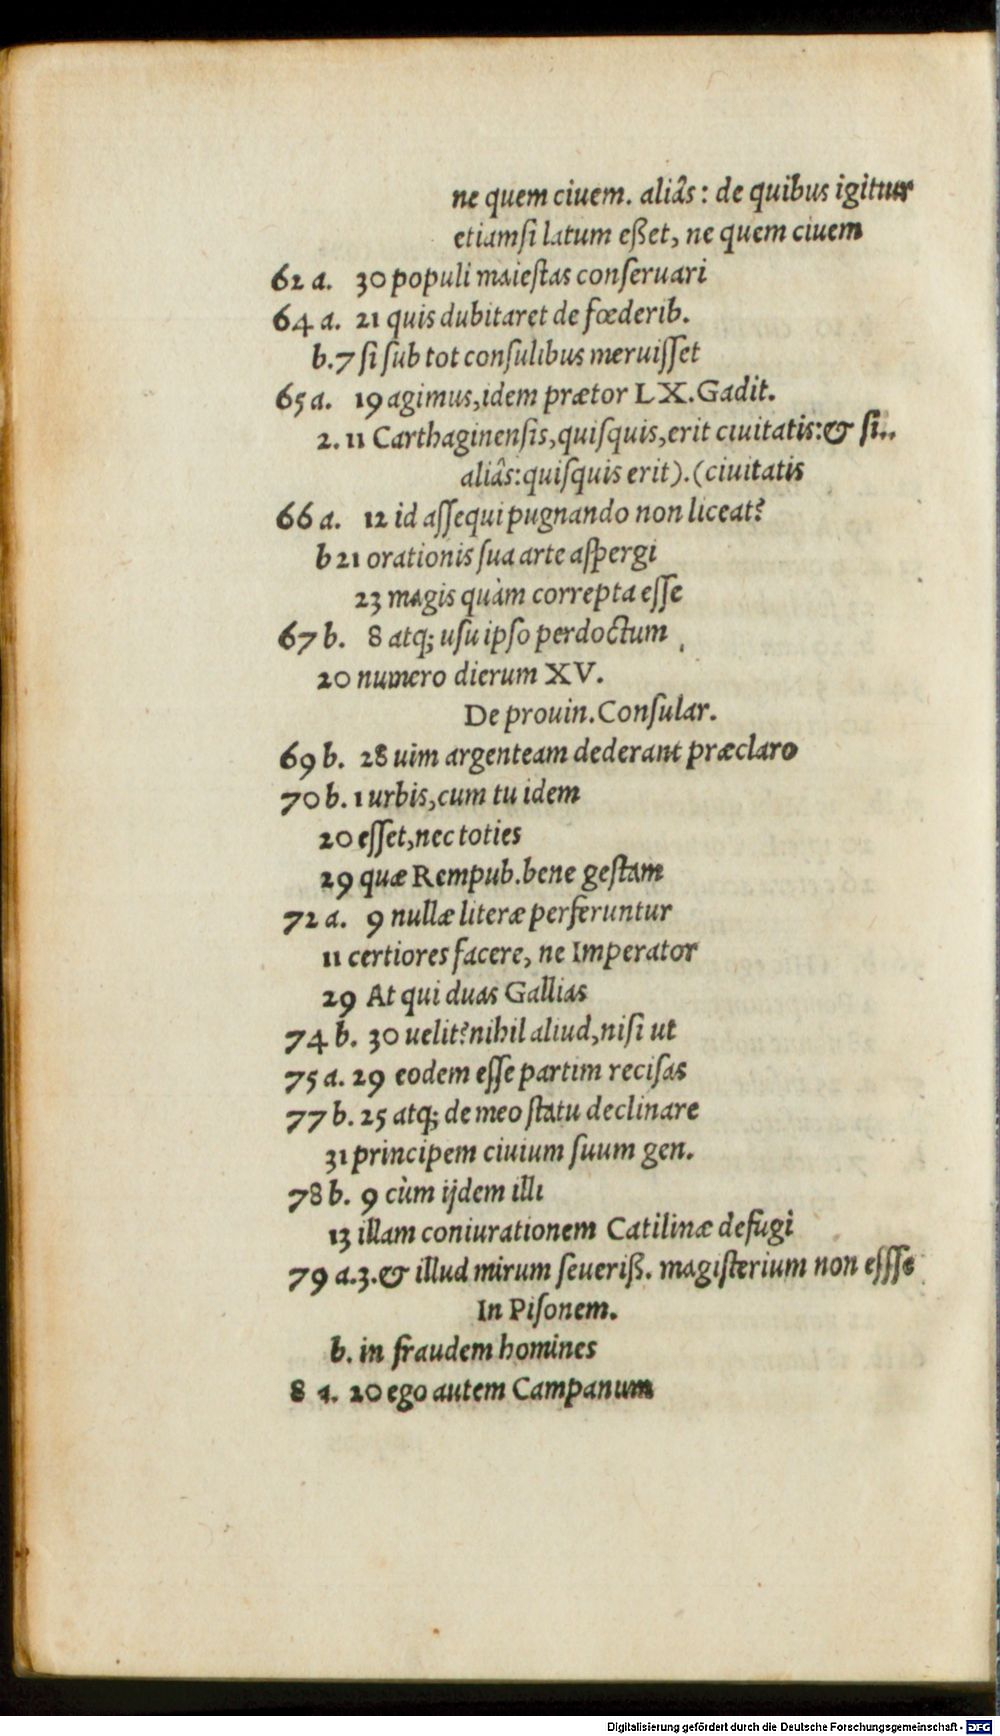 ne quem ciuem. aliâs: de quibus igitur
etiamsi latum eßet, ne quem ciuem
62 a. 30 populi maiestas conseruari
64 a. 21 quis dubitaret de fœderib.
b. 7 si sub tot consulibus meruisset
65 a. 19 agimus, idem prætor LX. Gadit.
2. 11 Carthaginensis, quisquis, erit ciuitatis: & si..
aliâs: quisquis erit). (ciuitatis
66 a. 12 id assequi pugnando non liceat?
b 21 orationis sua arte aspergi
23 magis quàm correpta esse
67 b. 8 atq; usu ipso perdoctum
20 numero dierum XV.
De prouin. Consular.
69 b. 28 uim argenteam dederant præclaro
70 b. 1 urbis, cum tu idem
20 esset, nec toties
29 quæ Rempub. bene gestam
72 a. 9 nullæ literæ perferuntur
11 certiores facere, ne Imperator
29 At qui duas Gallias
74 b. 30 uelit? nihil aliud, nisi ut
75 a. 29 eodem esse partim recisas
77 b. 25 atq; de meo statu declinare
31 principem ciuium suum gen.
78 b. 9 cùm ijdem illi
13 illam coniurationem Catilinæ defugi
79 a. 3. & illud mirum seueriß. magisterium non essse
In Pisonem.
b. in fraudem homines
8 a. 20 ego autem Campanum
Digitalisierung gefördert durch die Deutsche Forschungsgemeinschaft - DFG